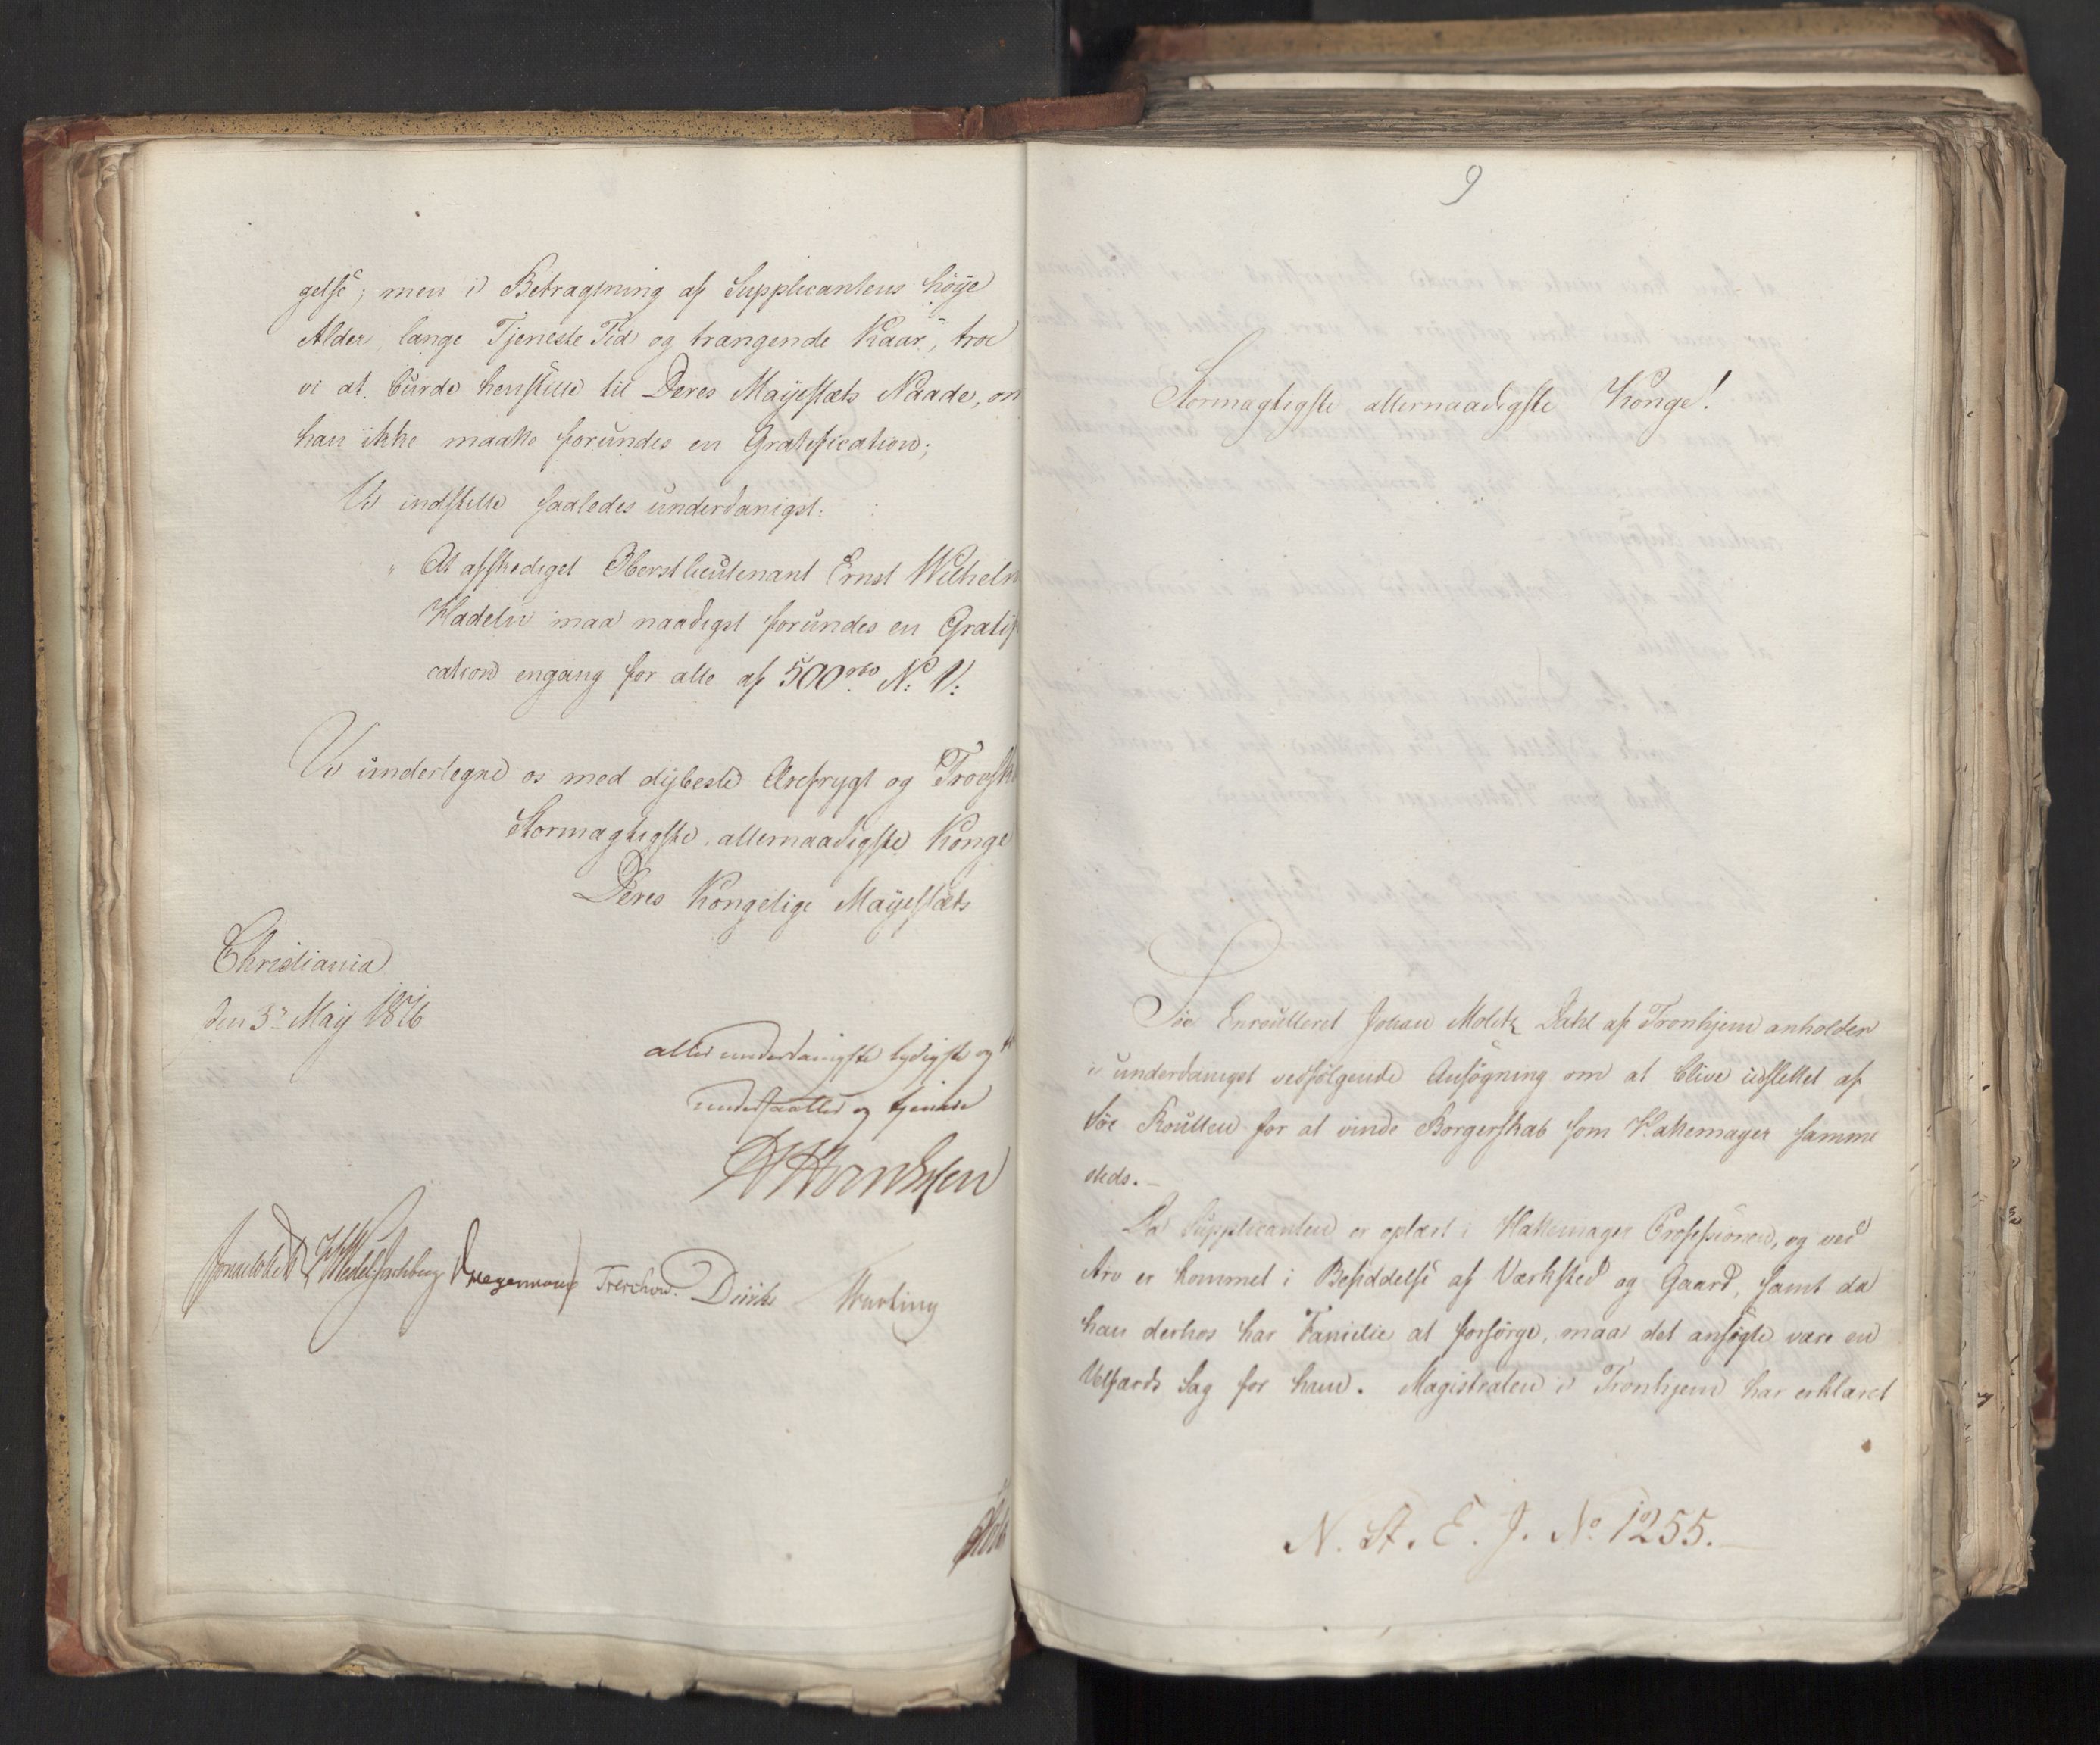 gelse; men i Betragtning af Supplicantens höÿe
Alder, lange Tjeneste Tid og trangende Kaar, troe
vi at burde henstille til Deres Maÿestæts Naade, om
han ikke maatte forundes en Gratification;
Vi indstille saaledes underdanigst:
" At afskediget Oberstlieutenant Ernst Wilhelm
Hadeln maa naadigst forundes en Gratifi
cation engang for alle af 500 rbd N: V:
Vi undertegne os med dÿbeste Ærefrygt og Troesk
Stormægtigste, allernaadigste Konge
Deres Kongelige Maÿestæts
Christiania
den 3die Maÿ 1816
allerunderdanigste lydigste og
undersaatter og tjenere
Sommerhielm Wedel Jarlsberg Krieg Treschow. Diriks Motzfeldt
9
Stormægtigste allernaadigste Konge!
Söe Enroulleret Johan Moltz Dahl af Tronhjem anholder
i underdanigst vedfölgende Ansögning om at blive udslettet af
Söe Roullen for at vinde Borgerskab som Hattemager samme
steds. –
Da Supplicanten er oplært i Hattemager Professionen, og ved
Arv er kommet i Besiddelse af Værksted og Gaard, samt da
han derhos har Familie at forsörge, maa det ansögte være en
Velfærds Sag for ham. Magistraten i Tronhjem har erklæret
N. St. E. J. No. 1255.